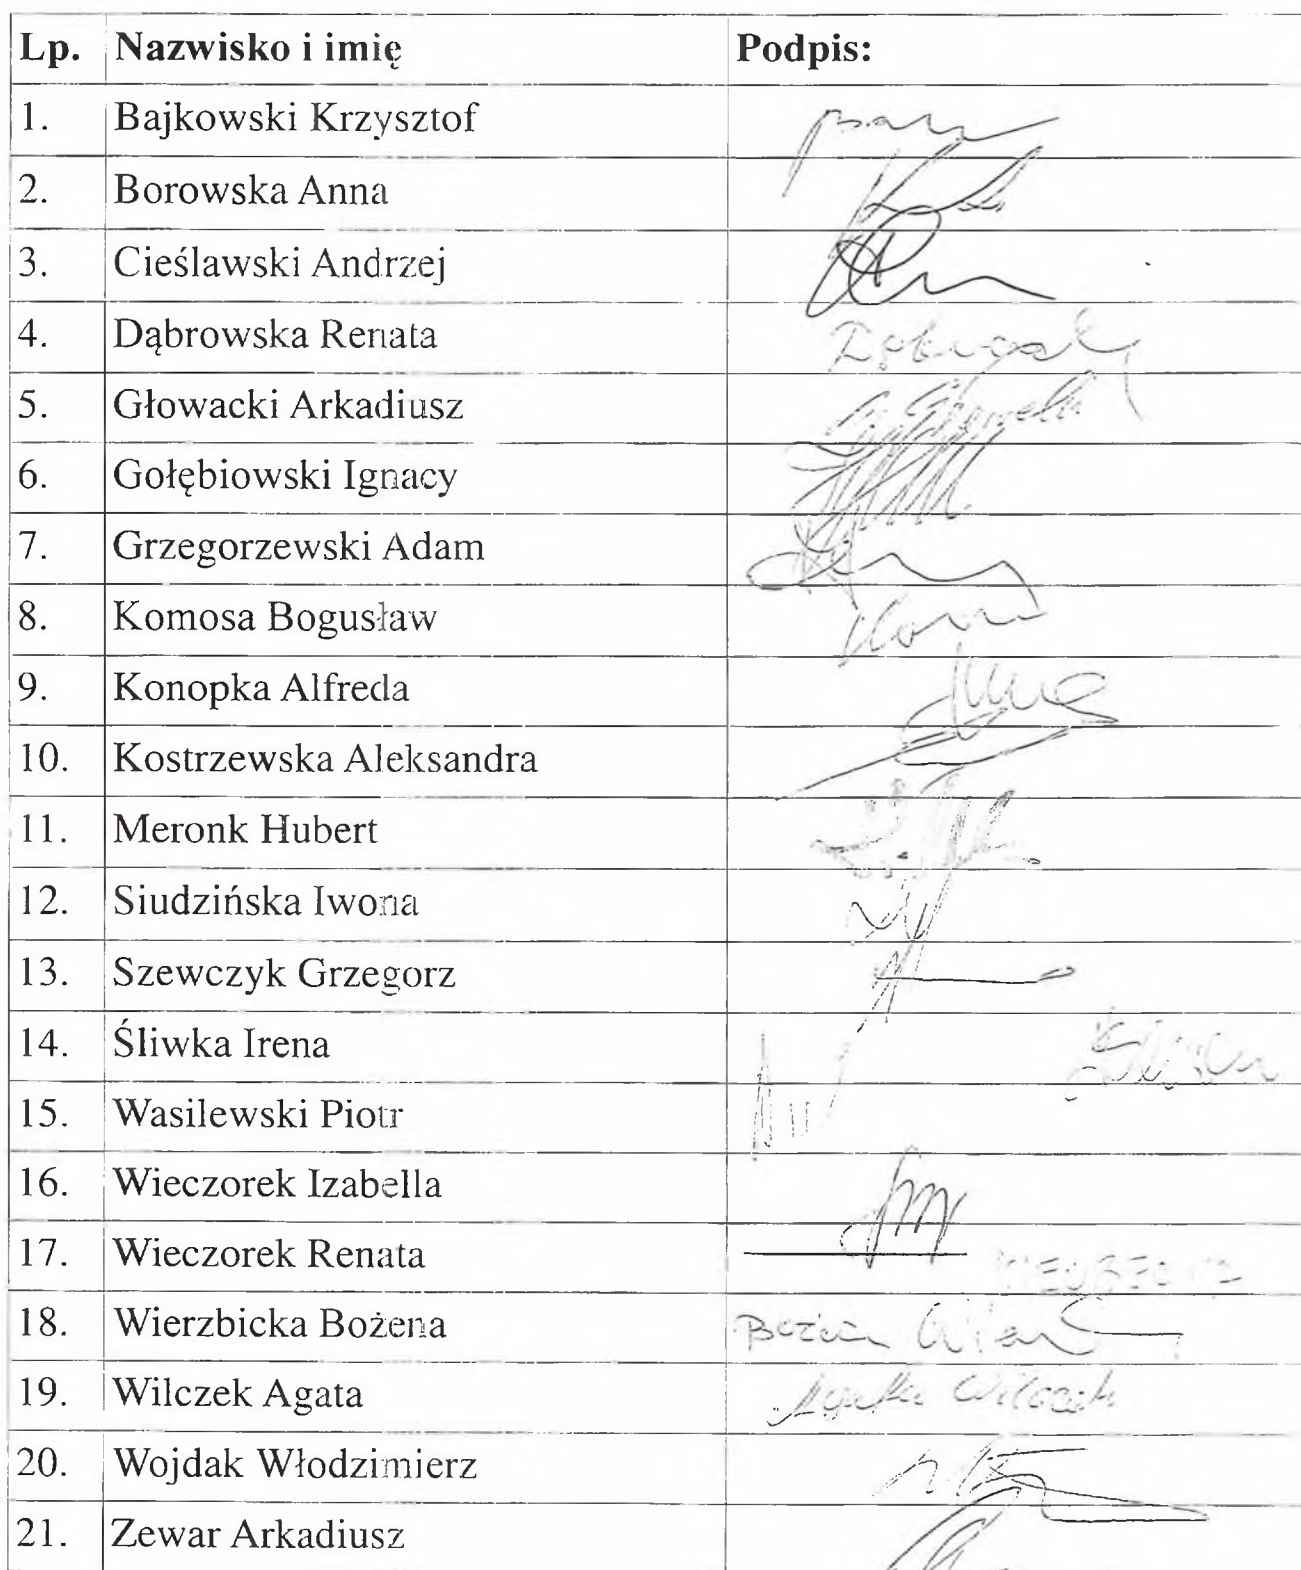 Lp. Nazwisko i imię Podpis:
1. Bajkowski Krzysztof
2. Borowska Anna
3. Cieślawski Andrzej
4. Dąbrowska Renata
5. Głowacki Arkadiusz
6. Gołębiowski Ignacy
7. Grzegorzewski Adam
8. Komosa Bogusław
9. Konopka Alfreda
10. Kostrzewska Aleksandra
11. Meronk Hubert
12. Siudzińska Iwona
13. Szewczyk Grzegorz
14. Śliwka Irena
15. Wasilewski Piotr
16. Wieczorek Izabella
17. Wieczorek Renata NIEOBECNA
18. Wierzbicka Bożena
19. Wilczek Agata Agata Wilczek
20. Wojdak Włodzimierz
21. Zewar Arkadiusz